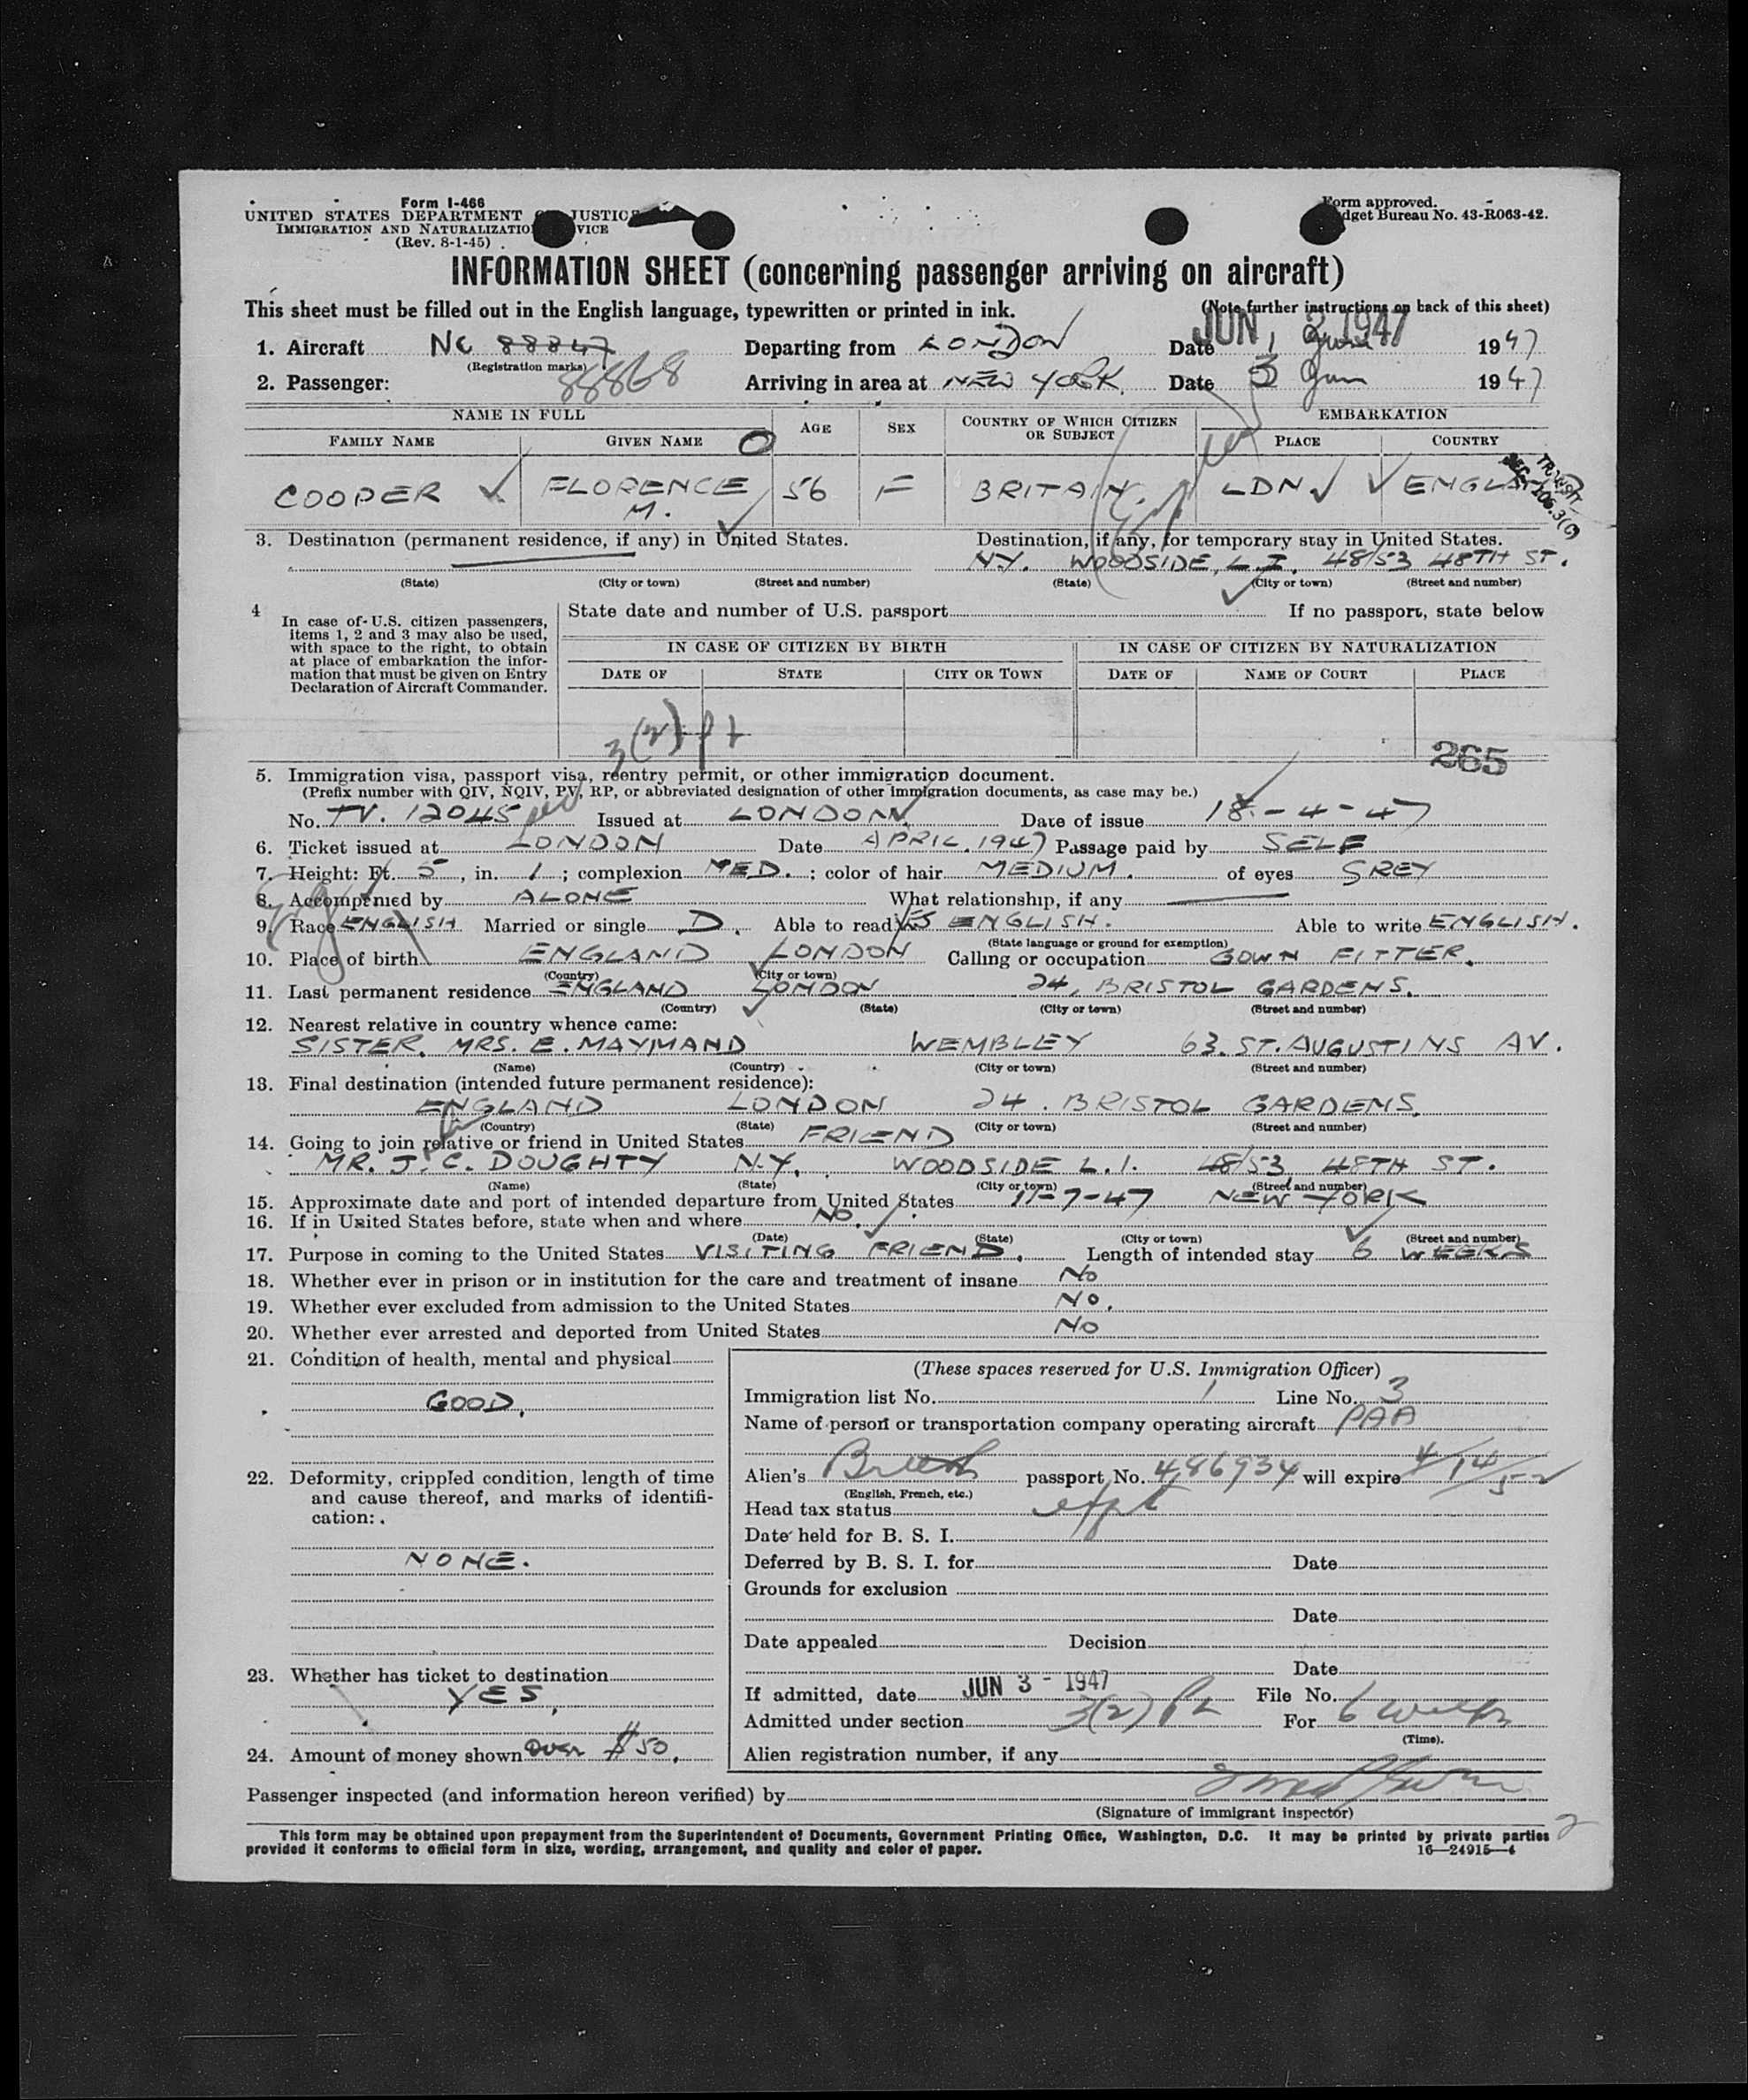 Form I-466
UNITED STATES DEPARTMENT JUSTICE
IMMIGRATION AND NATURALIZATION
(Rev. 8-1-45)
Form approved.
Budget Bureau No. 43-R063-42.
INFORMATION SHEET (concerning passenger arriving on aircraft)
This sheet must be filled out in the English language, typewritten or printed in ink. (Note further instructions on back of this sheet)
JUN 3 1947
1. Aircraft NC 88847 Departing from LONDON Date 1 June 1947
(Registration marks)
88868
2. Passenger: Arriving in area at NEW YORK. Date 3 Jun 1947
NAME IN FULL AGE SEX COUNTRY OF WHICH CITIZEN OR SUBJECT EMBARKATION
FAMILY NAME GIVEN NAME PLACE COUNTRY
COOPER FLORENCE M. 56 F BRITAIN. LDN ENGLAND
3. Destination (permanent residence, if any) in United States. Destination, if any, for temporary stay in United States.
N.Y. WOODSIDE, L.I. 48/53 48TH ST.
(State) (City or town) (Street and number) (State) (City or town) (Street and number)
4 In case of U.S. citizen passengers, items 1, 2 and 3 may also be used, with space to the right, to obtain at place of embarkation the information that must be given on Entry Declaration of Aircraft Commander.
State date and number of U.S. passport If no passport, state below
IN CASE OF CITIZEN BY BIRTH IN CASE OF CITIZEN BY NATURALIZATION
DATE OF STATE CITY OR TOWN DATE OF NAME OF COURT PLACE
3(2)
265
5. Immigration visa, passport visa, reentry permit, or other immigration document.
(Prefix number with QIV, NQIV, PV, RP, or abbreviated designation of other immigration documents, as case may be.)
No. TV. 12045 Issued at LONDON Date of issue 18-4-47
6. Ticket issued at LONDON Date APRIL. 1947 Passage paid by SELF
7. Height: Ft. 5, in. 1; complexion MED.; color of hair MEDIUM. of eyes GREY
8. Accompanied by ALONE What relationship, if any
9. Race ENGLISH Married or single D. Able to read YES ENGLISH. Able to write ENGLISH.
(State language or ground for exemption)
10. Place of birth ENGLAND LONDON Calling or occupation GOWN FITTER.
(Country) (City or town)
11. Last permanent residence ENGLAND LONDON 24, BRISTOL GARDENS.
(Country) (State) (City or town) (Street and number)
12. Nearest relative in country whence came:
SISTER. MRS. E. MAYMAND WEMBLEY 63. ST. AUGUSTINS AV.
(Name) (Country) (City or town) (Street and number)
13. Final destination (intended future permanent residence):
ENGLAND LONDON 24. BRISTOL GARDENS.
(Country) (State) (City or town) (Street and number)
14. Going to join relative or friend in United States FRIEND
MR. J. C. DOUGHTY N.Y. WOODSIDE L.I. 48/53 48TH ST.
(Name) (State) (City or town) (Street and number)
15. Approximate date and port of intended departure from United States 11-7-47 NEW YORK
16. If in United States before, state when and where NO.
(Date) (State) (City or town) (Street and number)
17. Purpose in coming to the United States VISITING FRIEND. Length of intended stay 6 WEEKS
18. Whether ever in prison or in institution for the care and treatment of insane No
19. Whether ever excluded from admission to the United States No.
20. Whether ever arrested and deported from United States No
21. Condition of health, mental and physical
GOOD.
22. Deformity, crippled condition, length of time and cause thereof, and marks of identification:
NONE.
23. Whether has ticket to destination
YES.
24. Amount of money shown Over $50.
(These spaces reserved for U.S. Immigration Officer)
Immigration list No. 1 Line No. 3
Name of person or transportation company operating aircraft PAA
Alien's British passport No. 486934 will expire 4/14/52
(English, French, etc.)
Head tax status
Date held for B. S. I.
Deferred by B. S. I. for Date
Grounds for exclusion
Date
Date appealed Decision
Date
If admitted, date JUN 3 - 1947 File No.
Admitted under section 3(2) For 6 weeks
(Time).
Alien registration number, if any
Passenger inspected (and information hereon verified) by
(Signature of immigrant inspector)
This form may be obtained upon prepayment from the Superintendent of Documents, Government Printing Office, Washington, D.C. It may be printed by private parties
provided it conforms to official form in size, wording, arrangement, and quality and color of paper. 16—24915—4
2